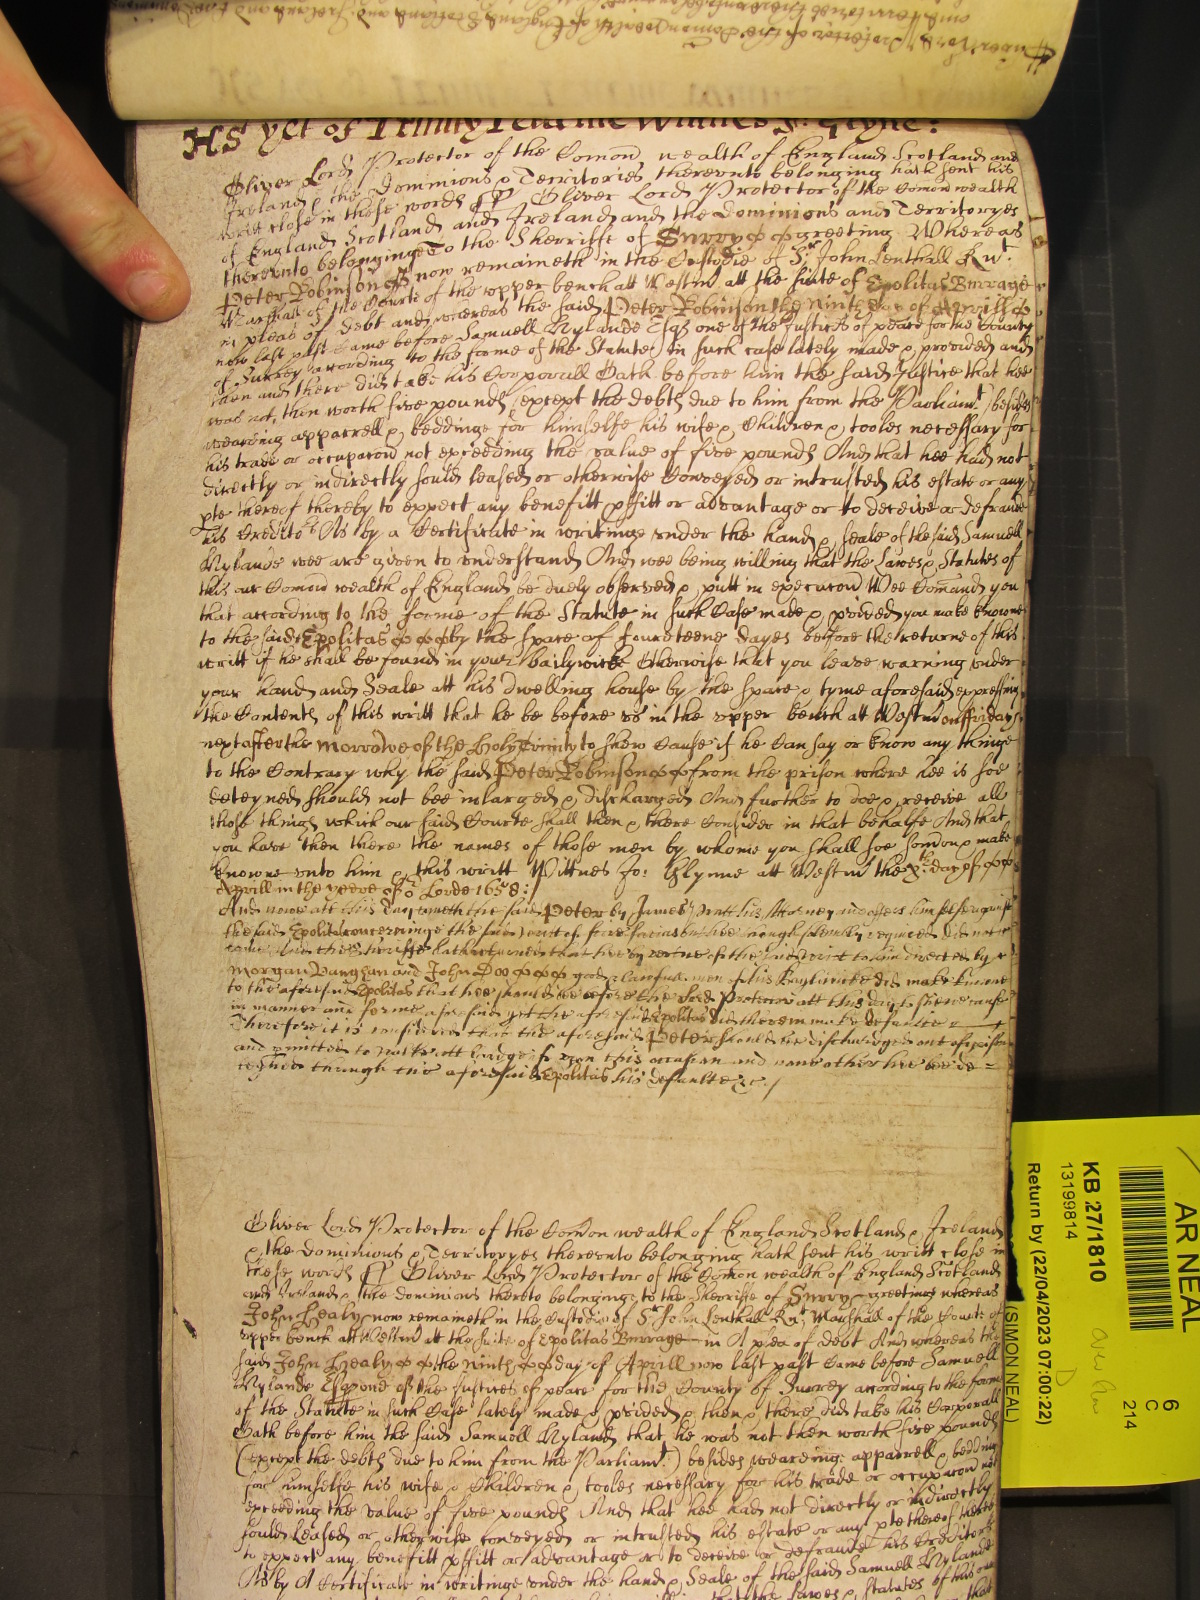 As yet of Trinity Tearme Witnes J. Glyne:
Oliver Lord Protector of the Comon wealth of England Scotland and
Ireland & the Dominions & Territories thereunto belonging hath sent his
writt close in these words ss Oliver Lord Protector of the Comon wealth
of England Scotland and Ireland and the Dominions and Territoryes
thereunto belonginge To the Sherriffe of Surry greeting Whereas
Peter Robinson now remaineth in the Custodie of Sr John Lenthall Knt.
Marshall of the Courte of the upper bench att Westm att the suite of Epolitas Burrage
in pleas of debt and whereas the said Peter Robinson the ninth day of Aprill
now last past Came before Samuell Nylande Esqr one of the Justices of peace for the County
of Surrey according to the forme of the Statute in such case lately made & provided and
then and there did take his Corporall Oath before him the said Justice that hee
was not then worth five pounds (except the debts due to him from the Parliamt) besides
wearing apparrell & beddinge for himselfe his wife & Children & tooles necessary for
his trade or occupacon not exceeding the value of five pounds And that hee had not
directly or indirectly sould leased or otherwise Conveyed or intrusted his estate or any
pte thereof thereby to expect any benefitt pffitt or advantage or to deceive or defraude
his Creditors As by a Certificate in writinge under the hand & seale of the said Samuell
Nylande wee are given to understand And wee being willing that the Lawes & Statutes of
this our Comon wealth of England be duely observed & putt in execucon Wee Comand you
that according to the forme of the Statute in such Case made & pvided you make knowne
to the said Epolitas by the space of fourteene dayes before the returne of this
writt if he shall be found in your bailywicke Otherwise that you leave warning under
your hand and Seale att his dwelling house by the space & tyme aforesaid expressing
the Contents of this writt that he be before us in the upper bench att Westm on ffriday
next after the morrowe of the Holy Trinity to shew Cause if he Can say or know any thinge
to the Contrary why the said Peter Robinson from the prison where hee is soe
deteyned should not bee inlarged & discharged And further to doe & receive all
those things which our said Courte shall then & there Consider in that behalfe And that
you have then there the names of those men by whome you shall soe somon & make
knowne unto him & this writt Wittnes Jo: Glynne att Westm the day of
Aprill in the yeare of or Lorde 1658:/
And now att this day cometh the said Peter by James his Attorney and offers himselfe against
the said Epolitas concerninge the said writ of scire facias but hee though solemnly required did not
come And the sheriffe hath returned that hee by vertue of the said writ to him directed by
Morgan Vaughan and John Doo good & lawfull men of his Bayliwicke did make knowne
to the aforesaid Epolitas that hee should be before the Lord Protector att this day to shew cause
in manner and forme aforesaid yet the aforesaid Epolitas did therein make default
Therefore it is considered that the aforesaid Peter should be discharged out of prison
and bee att large upon this occasion and none other hee bee de=
teyned through the aforesaid Epolitas his default &c./
Oliver Lord Protector of the Comon wealth of England Scotland & Ireland
& the dominions & Territoryes thereunto belonging hath sent his writt close in
these words ss Oliver Lord Protector of the Comon wealth of England Scotland
and Ireland & the dominions thereto belonging to the Sherriffe of Surry greeting whereas
John Healy now remaineth in the Custodie of Sr John Lenthall Knt Marshall of the Courte of
upper bench att Westm at the suite of Epolitas Burrage in A plea of debt And whereas the
said John Healy the ninth day of Aprill now last past Came before Samuell
Nylande Esqr one of the Justices of peace for the County of Surrey according to the forme
of the Statute in such Case lately made & pvided & then & there did take his Corporall
Oath before him the said Samuell Nyland that he was not then worth five pounds
(except the debts due to him from the Parliamt:) besides wearding apparrell & bedding
for himselfe his wife & Children & tooles necessary for his trade or occupacon not
exceeding the value of five pounds And that hee had not directly or indirectly
sould leased or otherwise conveyed or intrusted his estate or any pte thereof thereby
to expect any benefitt pffitt or advantage or to deceive or defraude his Creditors
As by A Certificate in writinge under the hand & Seale of the said Samuell Nylande
that the Lawes & Statutes of this our
AR NEAL
6
C
214
KB 27/1810
13199814
(SIMON NEAL)
Return by (22/04/2023 07:00:22)